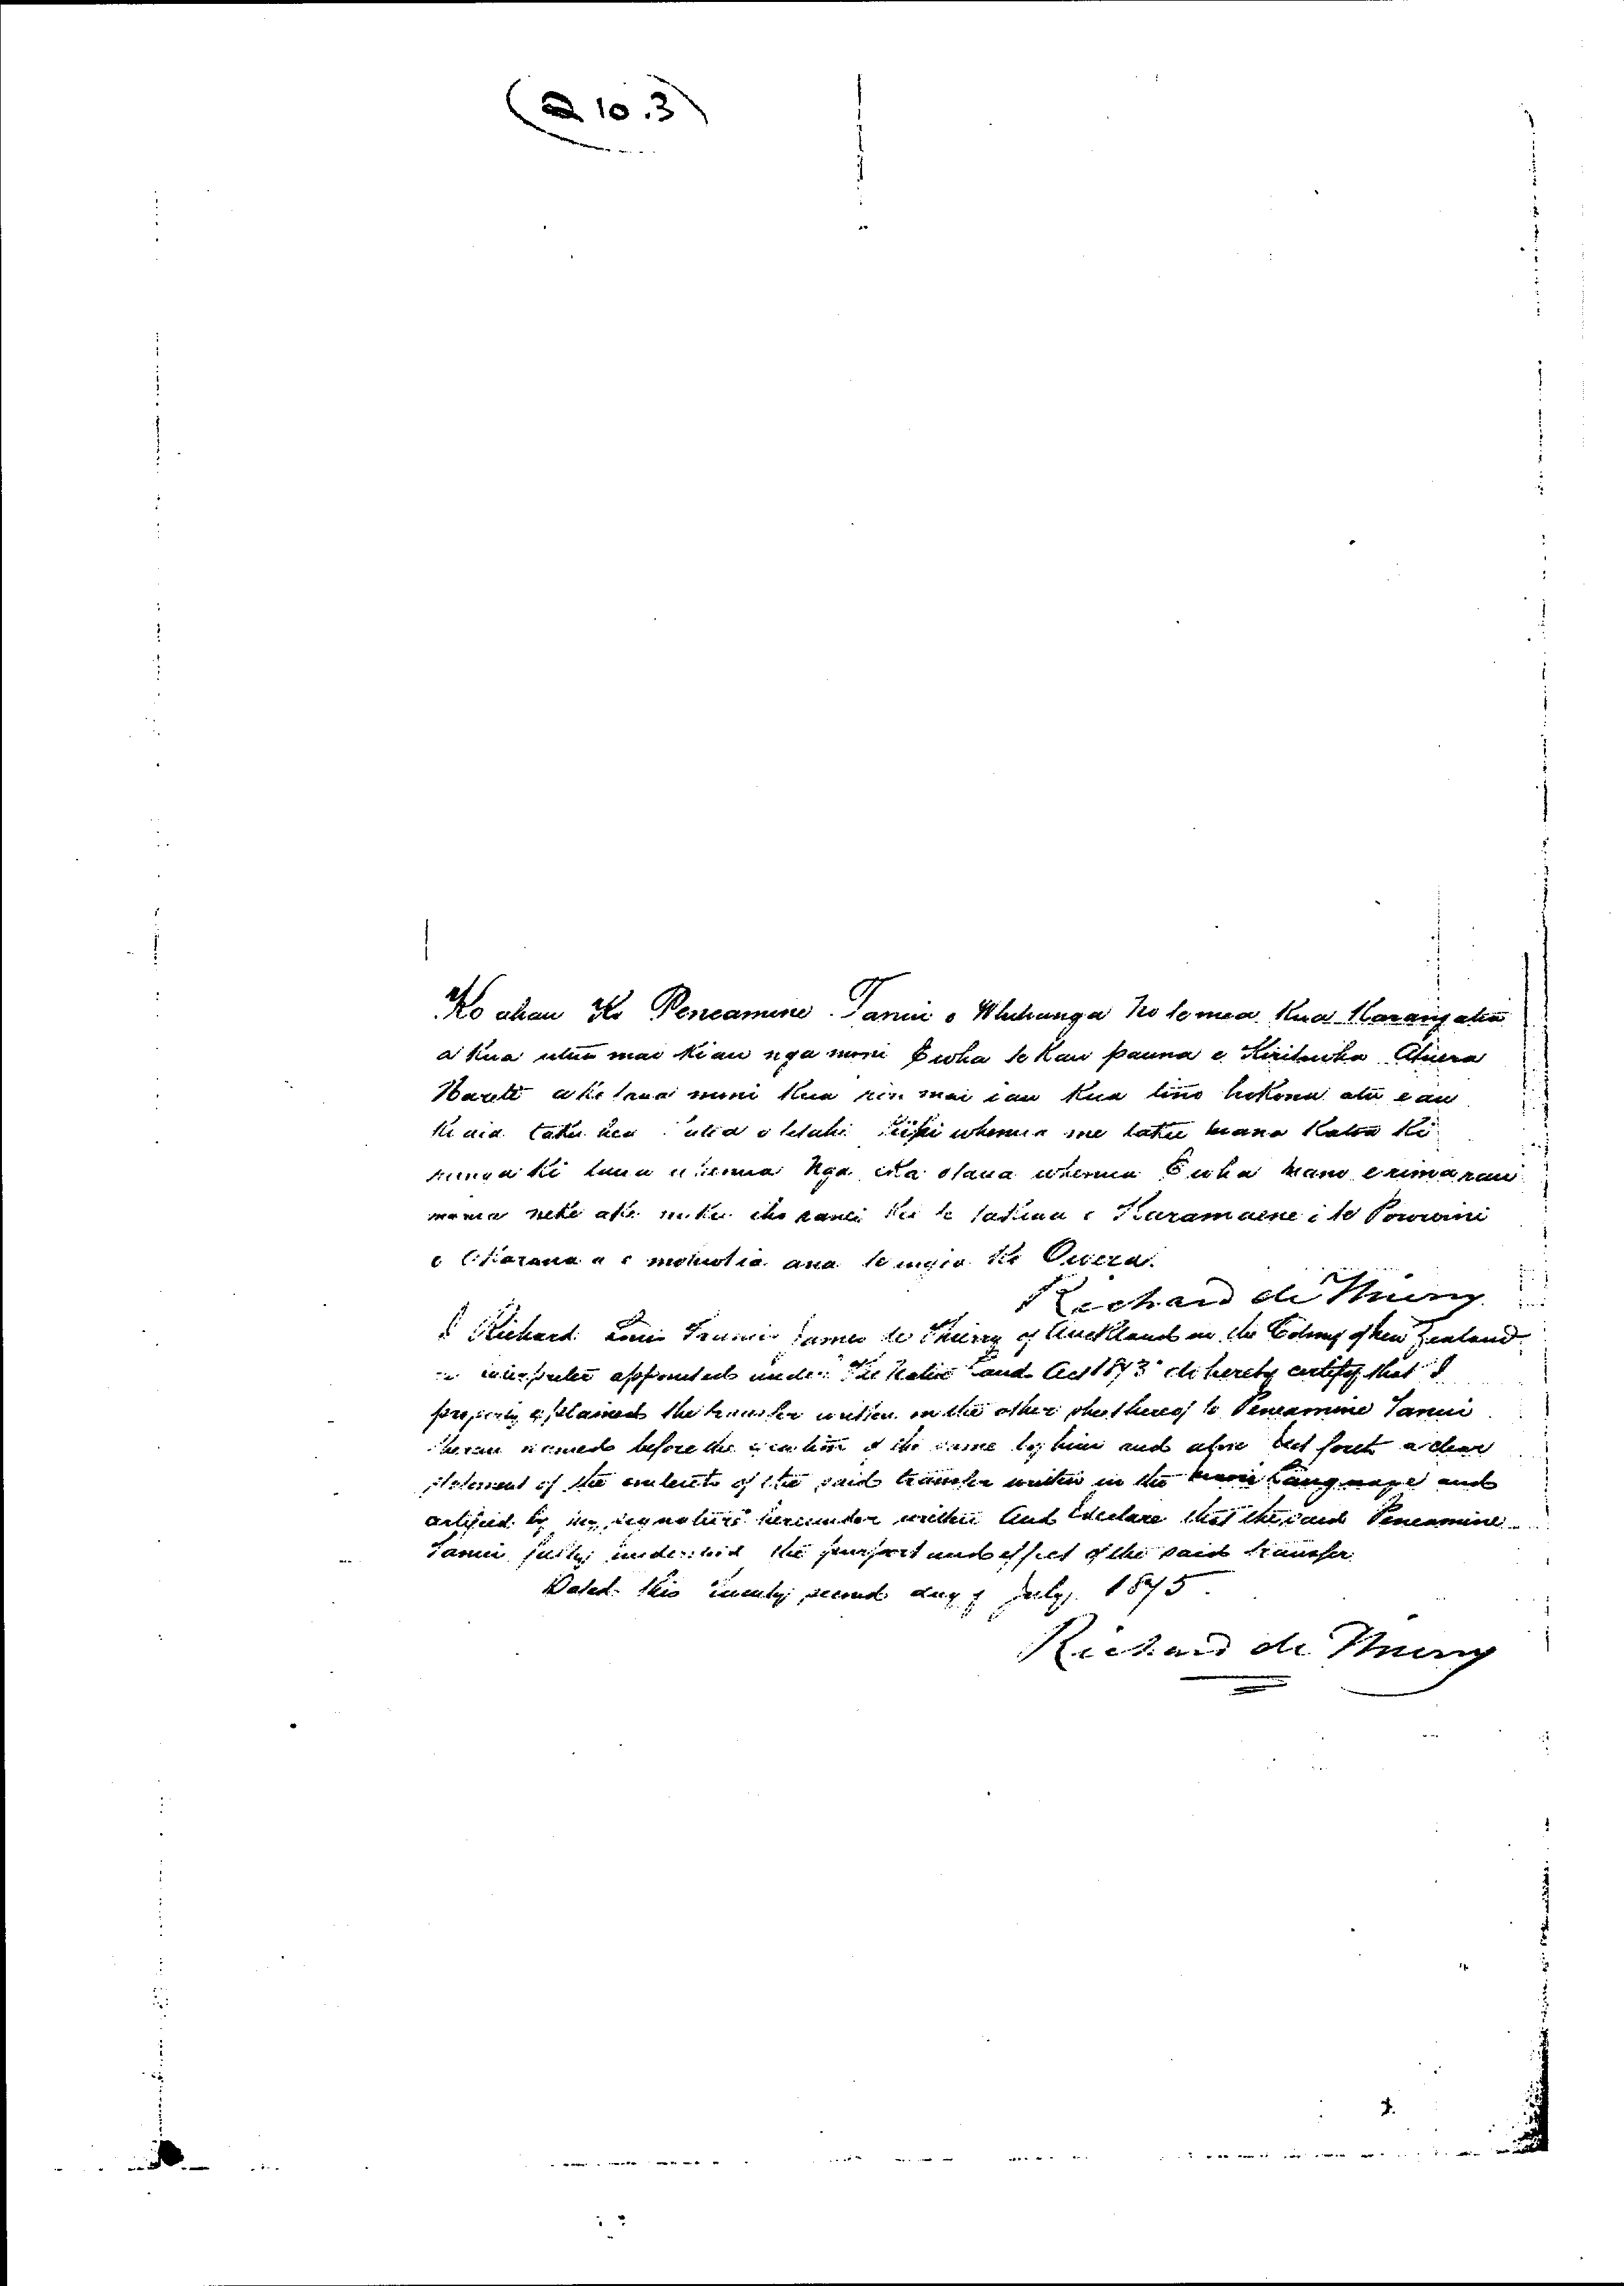 (Q 10.3)
Ko ahau Ko Peneamine Tanui o Whehunga No te mea Kua Karangatia
a Kua utua mai kiau nga moni E wha te Kau pauna e Atuera
a ko taua moni Kua mai i au Kua tino hokona atu e au
Ki aia taku o tetahi whenua me taku mana Katoa Ki
runga ki taua whenua Nga eka o taua whenua E wha mano e rima rau
neke atu iho ranei Kei te takiwa o i te Porowini
o Akarana a e mohiotia ana te ingoa Ko Owera.
Richard de Thierry
I Richard Louis Francis James de Thierry of Auckland in the Colony of New Zealand
an interpreter appointed under "The Native Land Act 1873" do hereby certify that I
properly explained the transfer written on the other side thereof to Peneamine Tanui
therein named before the execution of the same by him and above set forth a clear
statement of the contents of the said transfer written in the Maori Language and
certified by my signature hereunder written And I declare that the said Peneamine
Tanui fully understood the purport and effect of the said transfer
Dated this twenty second day of July 1875.
Richard de Thierry